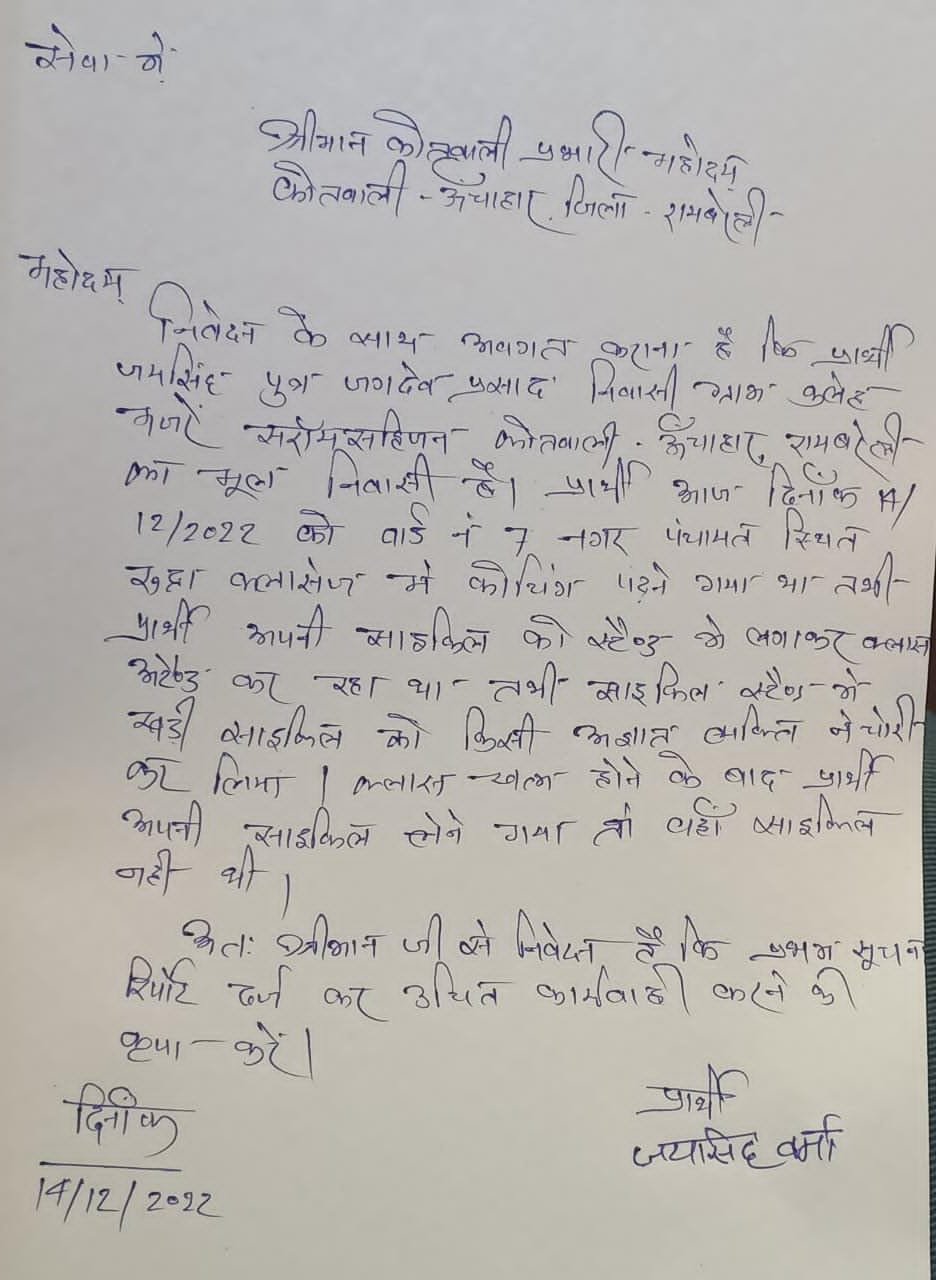 सेवा में
श्रीमान कोतवाली प्रभारी महोदय
कोतवाली - ऊँचाहार, जिला - रायबरेली
महोदय,
निवेदन के साथ अवगत कराना है कि प्रार्थी
जयसिंह पुत्र जगदेव प्रसाद निवासी ग्राम
मजरे कोतवाली - ऊँचाहार, रायबरेली
का मूल निवासी है। प्रार्थी आज दिनाँक 14/
12/2022 को वार्ड नं 7 नगर पंचायत स्थित
क्लासेज में कोचिंग पढ़ने गया था तभी
प्रार्थी अपनी साइकिल को स्टैण्ड में लगाकर क्लास
अटैण्ड कर रहा था तभी साइकिल स्टैण्ड में
खड़ी साइकिल को किसी अज्ञात व्यक्ति ने चोरी
कर लिया। क्लास खत्म होने के बाद प्रार्थी
अपनी साइकिल लेने गया तो वहाँ साइकिल
नही थी।
अतः श्रीमान जी से निवेदन है कि प्रथम सूचना
रिपोर्ट दर्ज कर उचित कार्यवाही करने की
कृपा करें।
प्रार्थी
जयसिंह वर्मा
दिनाँक
14/12/2022